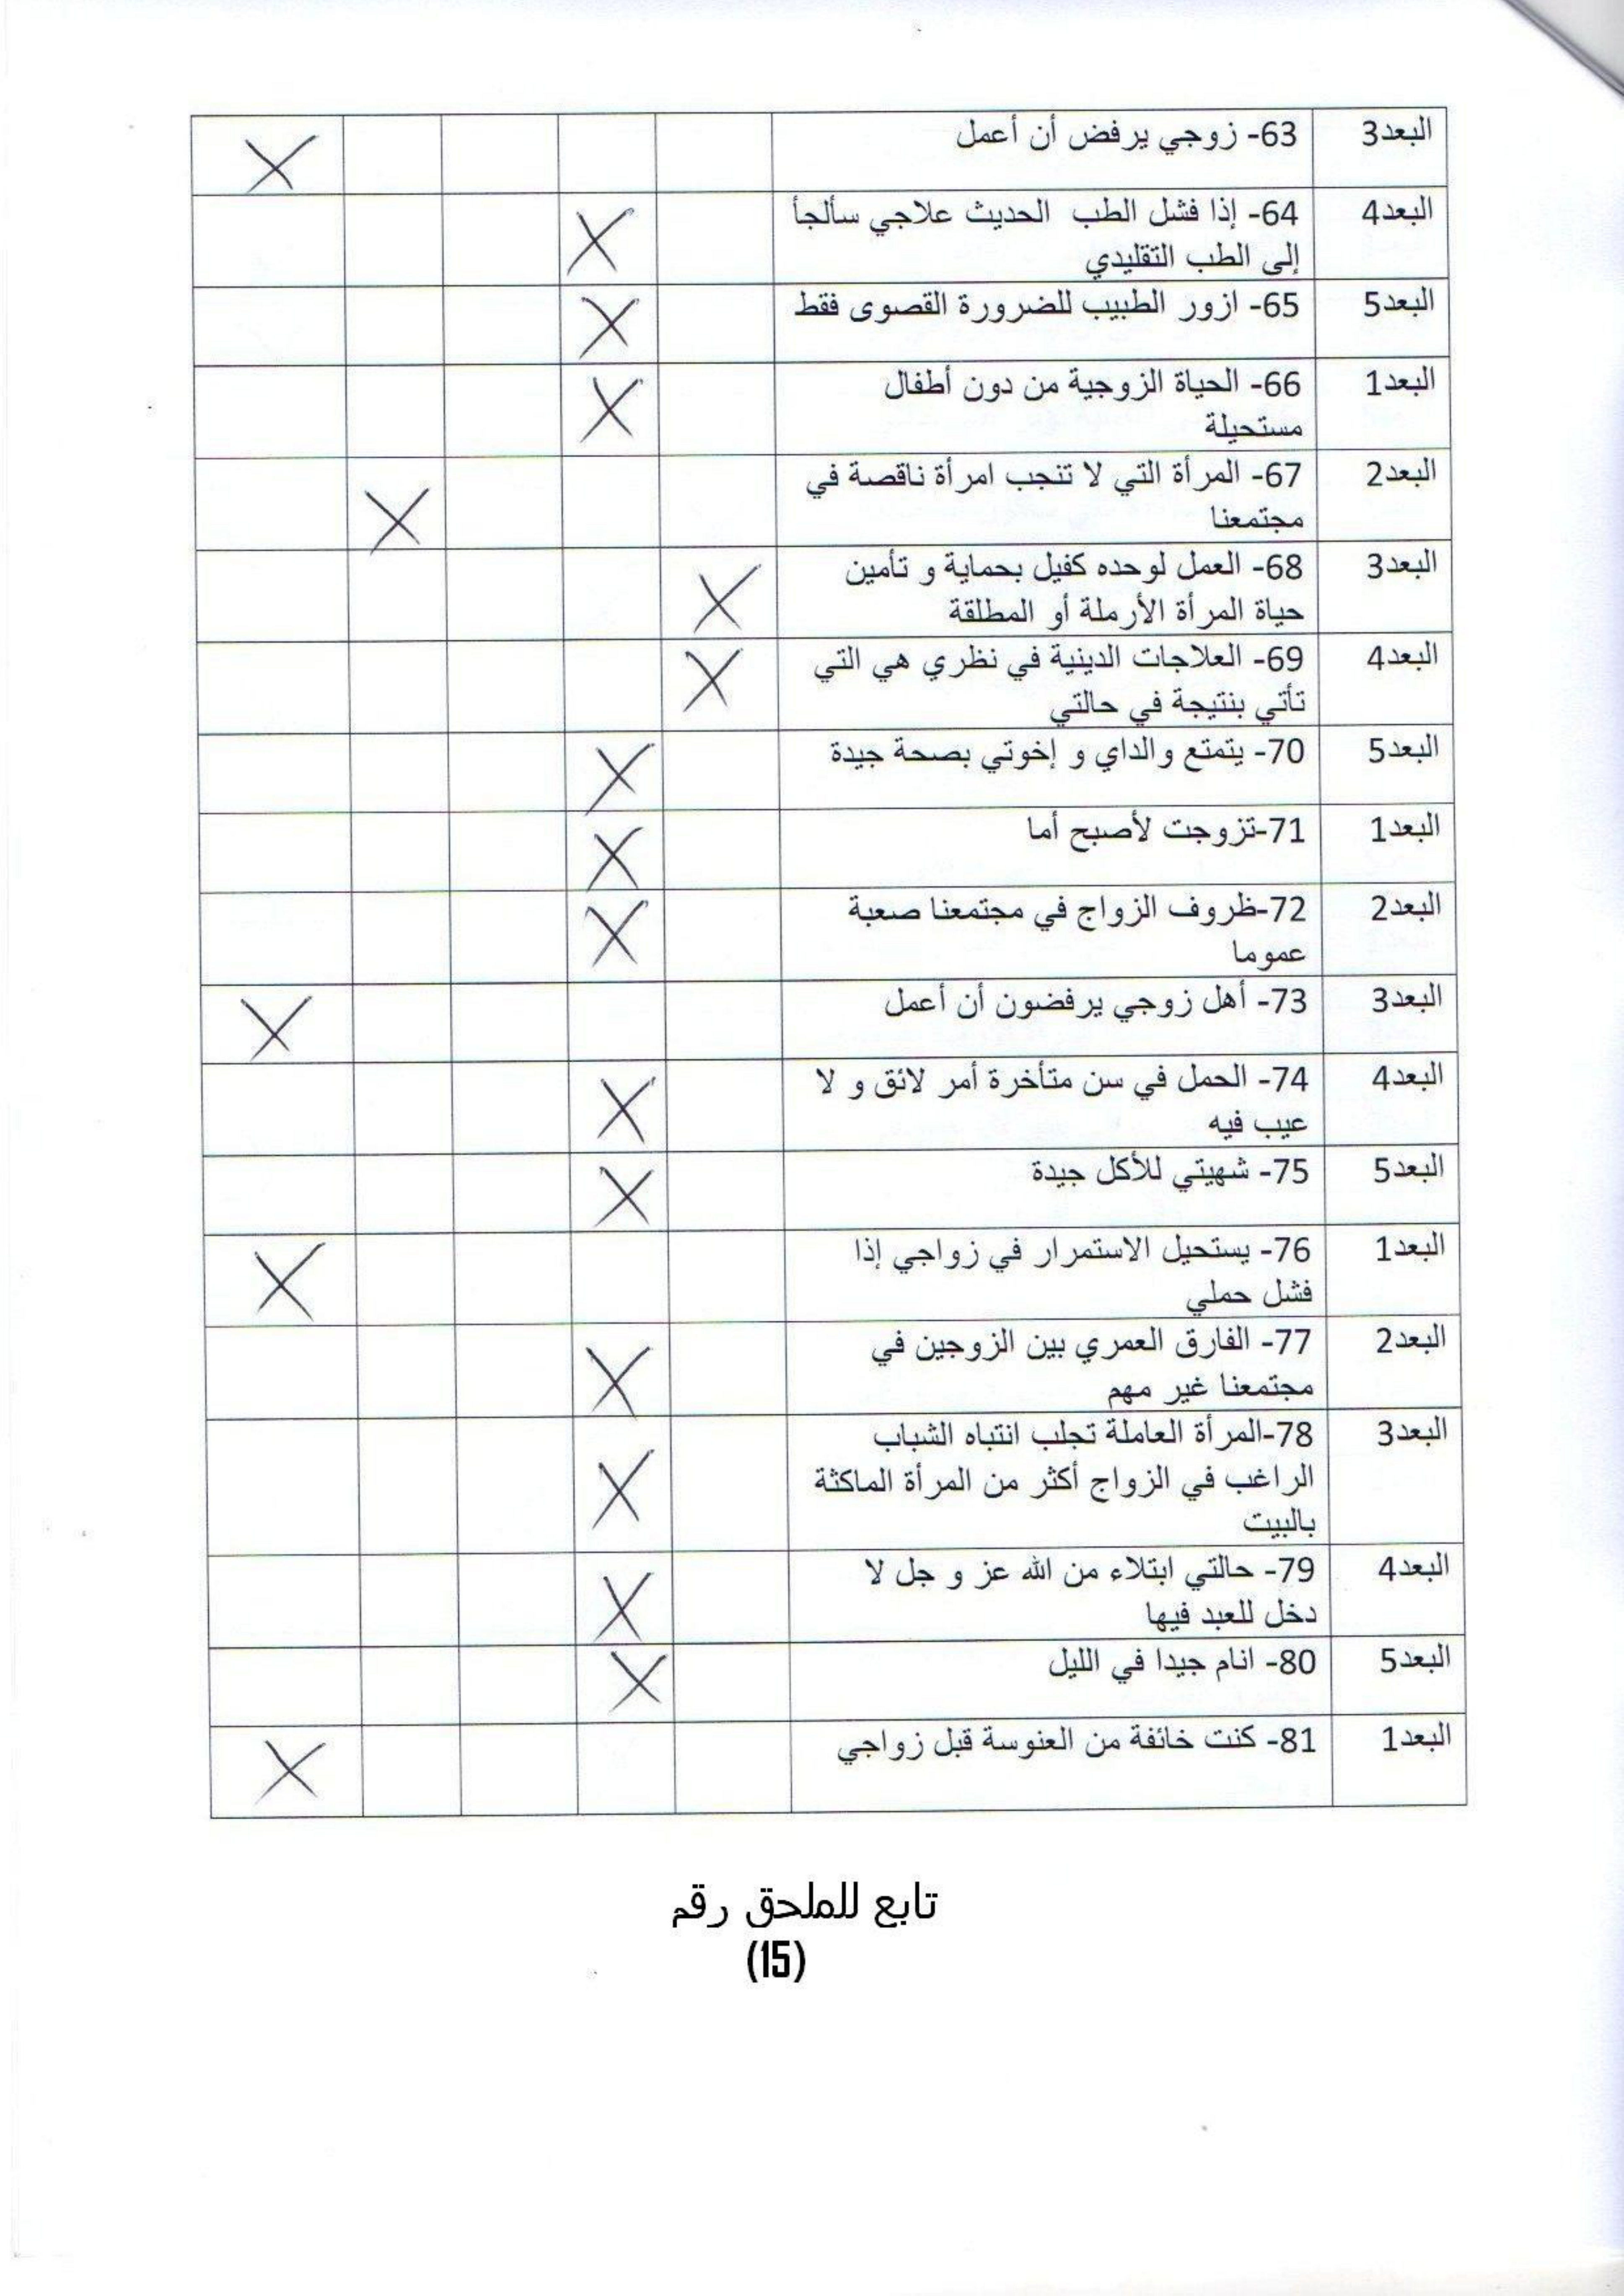 البعد3 63- زوجي يرفض أن أعمل X
البعد4 64- إذا فشل الطب الحديث علاجي سألجأ
إلى الطب التقليدي X
البعد5 65- ازور الطبيب للضرورة القصوى فقط X
البعد1 66- الحياة الزوجية من دون أطفال
مستحيلة X
البعد2 67- المرأة التي لا تنجب امرأة ناقصة في
مجتمعنا X
البعد3 68- العمل لوحده كفيل بحماية و تأمين
حياة المرأة الأرملة أو المطلقة X
البعد4 69- العلاجات الدينية في نظري هي التي
تأتي بنتيجة في حالتي X
البعد5 70- يتمتع والداي و إخوتي بصحة جيدة X
البعد1 71-تزوجت لأصبح أما X
البعد2 72-ظروف الزواج في مجتمعنا صعبة
عموما X
البعد3 73- أهل زوجي يرفضون أن أعمل X
البعد4 74- الحمل في سن متأخرة أمر لائق و لا
عيب فيه X
البعد5 75- شهيتي للأكل جيدة X
البعد1 76- يستحيل الاستمرار في زواجي إذا
فشل حملي X
البعد2 77- الفارق العمري بين الزوجين في
مجتمعنا غير مهم X
البعد3 78-المرأة العاملة تجلب انتباه الشباب
الراغب في الزواج أكثر من المرأة الماكثة
بالبيت X
البعد4 79- حالتي ابتلاء من الله عز و جل لا
دخل للعبد فيها X
البعد5 80- انام جيدا في الليل X
البعد1 81- كنت خائفة من العنوسة قبل زواجي X
تابع للملحق رقم
(15)